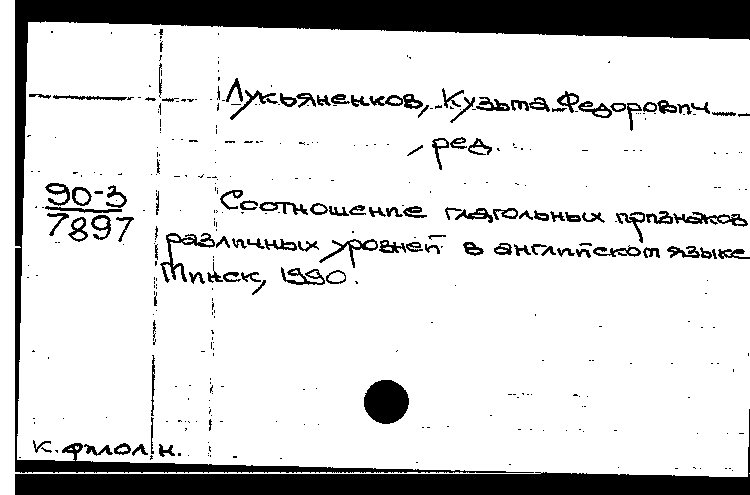 Лукьяненков, Кузьма Федорович
, ред.
90-3
7897
Соотношение глагольных признаков
различных уровней в английском языке
Минск, 1990.
к. филол. н.